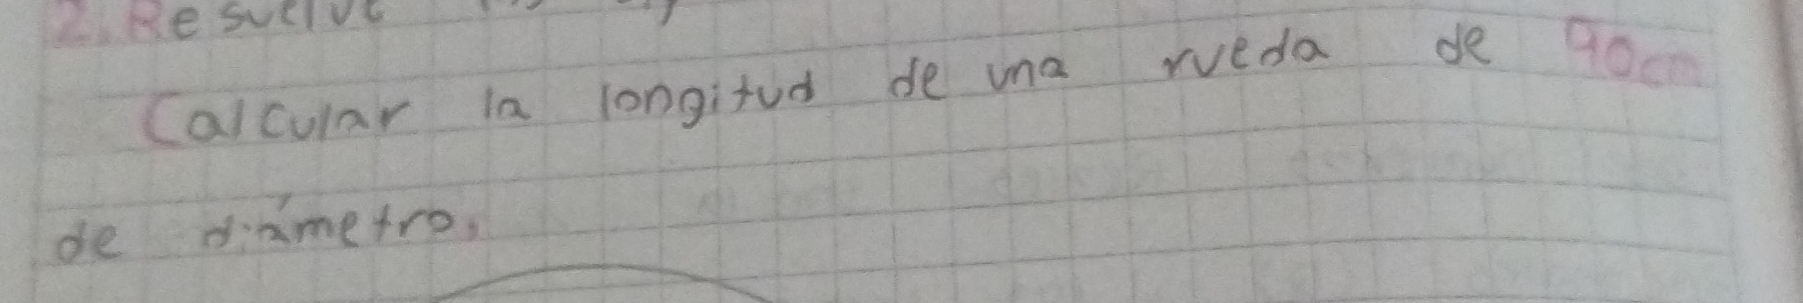 2. Resuelve
Calcular la longitud de una rueda de 90cm
de diámetro.